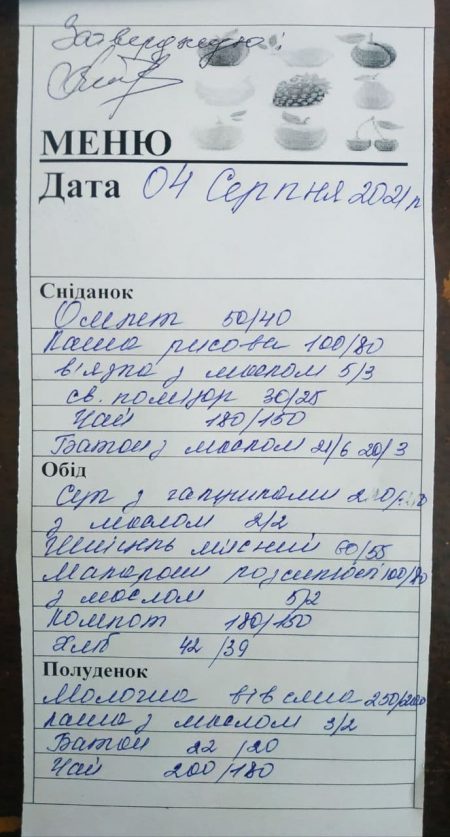 Затверджую:
МЕНЮ
Дата 04 Серпня 2021 р
Сніданок
Омлет 50/40
Каша рисова 100/80
в'язка з маслом 5/3
св. помідор 30/25
Чай 180/150
Батон з маслом 21/6 20/3
Обід
Суп з галушками
з маслом 2/2
м'ясний 60/55
Макарони розсипчасті 100/80
з маслом 5/2
Компот 180/150
Хліб 42/39
Полуденок
Молочна вівсяна 250/200
каша з маслом 3/2
Батон 22/20
Чай 200/180